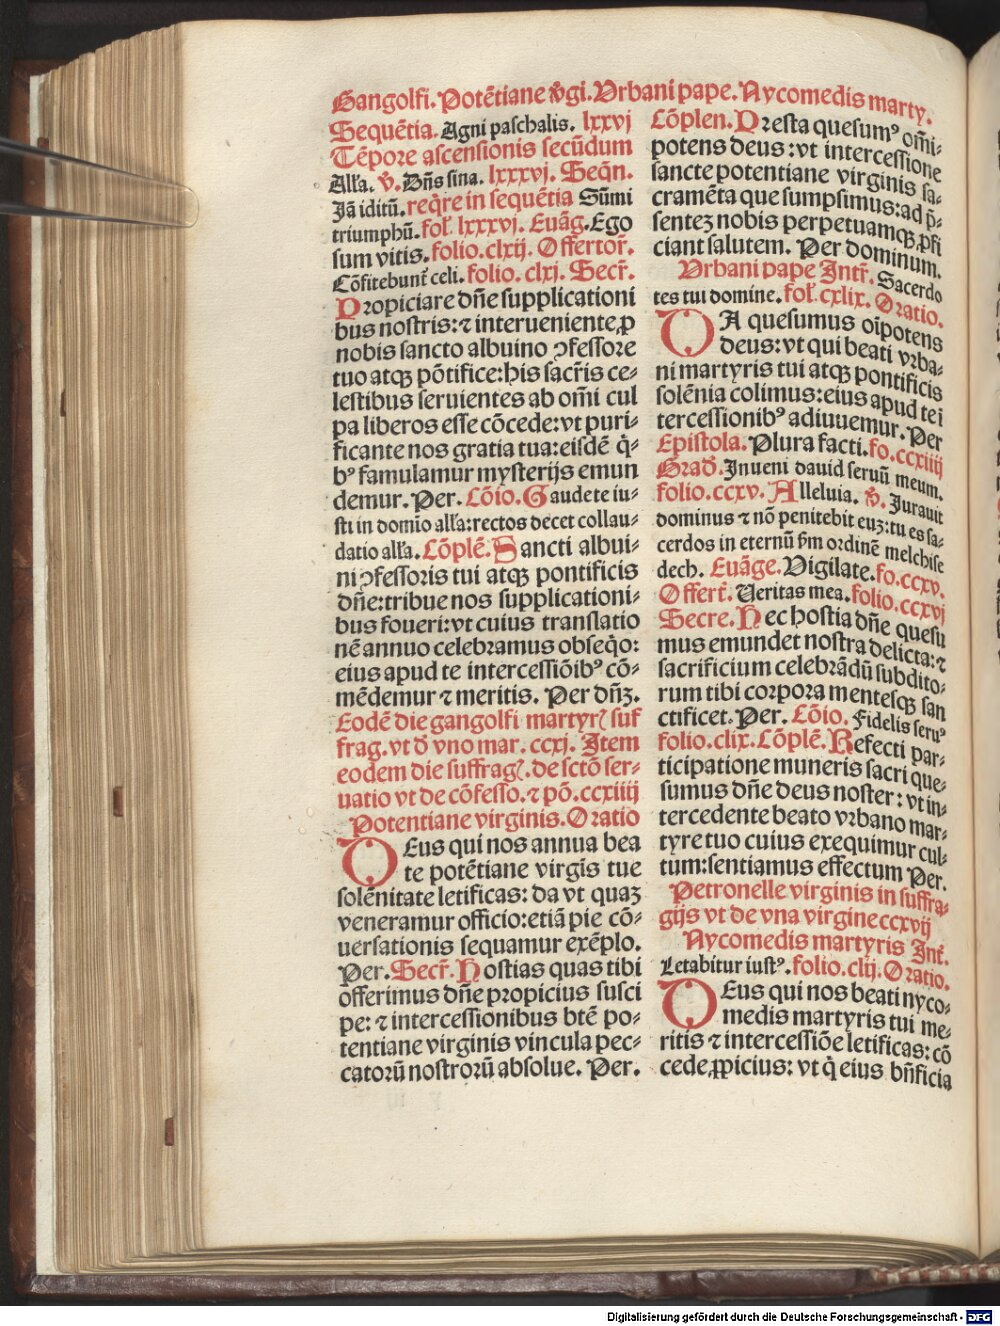 Gangolfi. Potẽtiane v̾gi. Vrbani pape. Nycomedis marty.
Sequẽtia. Agni paschalis. lxxvj
Tẽpore ascensionis secũdum
Alľa. v̾. Dñs sina. lxxxvj. Seq̃n.
Jã iditũ. req̃re in sequẽtia Sũmi
triumphũ. foľ. lxxxvj. Euãg. Ego
sum vitis. folio. clxij. Offertor̃.
Cõfitebunt̃ celi. folio. clxj. Secr̃.
Propiciare dñe supplicationi
bus nostris: ⁊ interueniente ꝓ
nobis sancto albuino ↄfessore
tuo atqꝫ põtifice: his sacr̃is ce⸗
lestibus seruientes ab om̃i cul
pa liberos esse cõcede: vt puri⸗
ficante nos gratia tua: eisdẽ q̃⸗
bꝰ famulamur mysterijs emun
demur. Per. Cõio. Gaudete iu⸗
sti in domĩo alľa: rectos decet collau⸗
datio alľa. Cõplẽ. Sancti albui⸗
ni ↄfessoris tui atqꝫ pontificis
dñe: tribue nos supplicationi⸗
bus foueri: vt cuius translatio
nẽ annuo celebramus obseq̃o:
eius apud te intercessiõibꝰ cõ⸗
mẽdemur ⁊ meritis. Per dñꝫ.
Eodẽ die gangolfi martyrꝭ suf
frag. vt d̾ vno mar. ccxj. Item
eodem die suffragꝭ. de sctõ ser⸗
uatio vt de cõfesso. ⁊ põ. ccxiiij
Potentiane virginis. Oratio
DEus qui nos annua bea
te potẽtiane virgis tue
solẽnitate letificas: da vt quaꝫ
veneramur officio: etiã pie cõ⸗
uersationis sequamur exẽplo.
Per. Secr̃. Hostias quas tibi
offerimus dñe propicius susci
pe: ⁊ intercessionibus btẽ po⸗
tentiane virginis vincula pec⸗
catorũ nostrorũ absolue. Per.
Cõplen. Presta quesumꝰ om̃i⸗
potens deus: vt intercessione
sancte potentiane virginis sa⸗
cramẽta que sumpsimus: ad p̃⸗
senteꝫ nobis perpetuamqꝫ ꝓfi
ciant salutem. Per dominum.
Vrbani pape Intr̃. Sacerdo
tes tui domine. foľ. cxlix. Oratio.
DA quesumus oĩpotens
deus: vt qui beati vrba⸗
ni martyris tui atqꝫ pontificis
solẽnia colimus: eius apud te ĩ
tercessionibꝰ adiuuemur. Per
Epistola. Plura facti. fo. ccxiiij
Grad̾. Inueni dauid seruũ meum.
folio. ccxv. Alleluia. v̾. Jurauit
dominus ⁊ nõ penitebit euꝫ: tu es sa⸗
cerdos in eternũ ẜm ordinẽ melchise
dech. Euãge. Vigilate. fo. ccxv.
Offert̃. Ueritas mea. folio. ccxvj
Secre. Hec hostia dñe quesu
mus emundet nostra delicta: ⁊
sacrificium celebrãdũ subdito⸗
rum tibi corpora mentesqꝫ san
ctificet. Per. Cõio. Fidelis seruꝰ
folio. clix. Cõplẽ. Refecti par⸗
ticipatione muneris sacri que⸗
sumus dñe deus noster: vt in⸗
tercedente beato vrbano mar⸗
tyre tuo cuius exequimur cul⸗
tum: sentiamus effectum Per.
Petronelle virginis in suffra⸗
gijs vt de vna virgine ccxvij
Nycomedis martyris Int̃.
Letabitur iustꝰ. folio. clij. Oratio.
DEus qui nos beati nyco⸗
medis martyris tui me⸗
ritis ⁊ intercessiõe letificas: cõ
cede ꝓpicius: vt q̇ eius bñficia
Digitalisierung gefördert durch die Deutsche Forschungsgemeinschaft - DFG